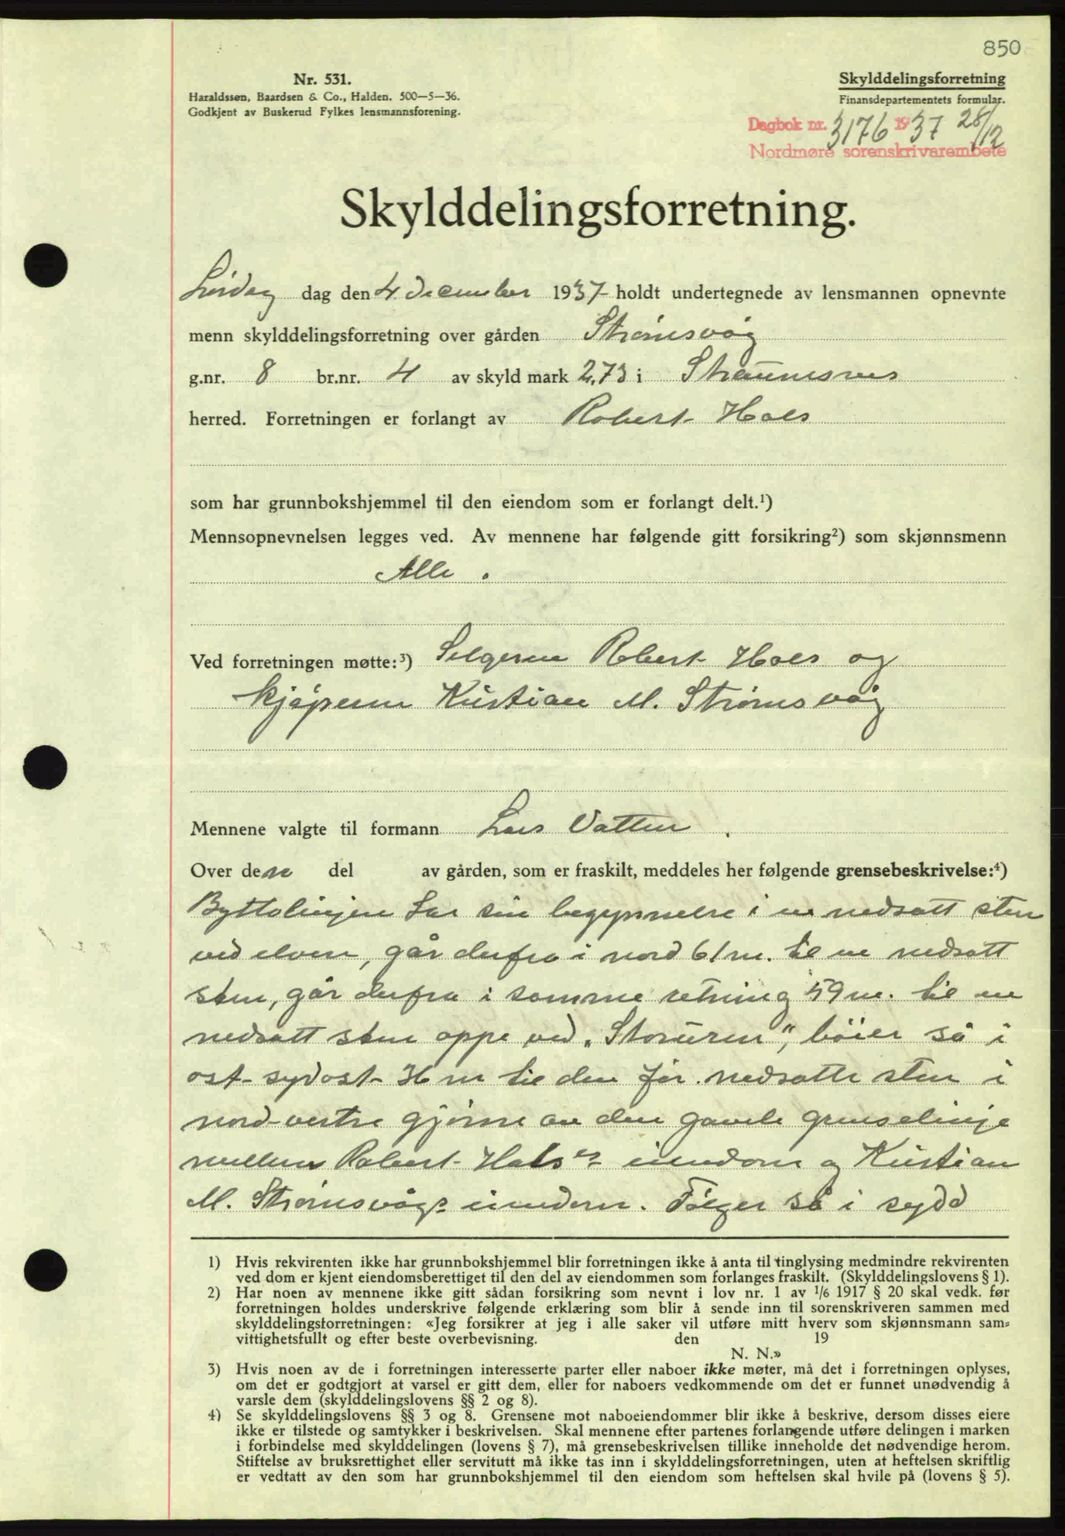 850
Nr. 531.
Haraldssen, Baardsen & Co., Halden. 500—5—36.
Godkjent av Buskerud Fylkes lensmannsforening.
Skylddelingsforretning
Finansdepartementets formular.
Dagbok nr. 3176 1937 28/12
Nordmøre sorenskrivarembete
Skylddelingsforretning.
Lørdag dag den 4 december 1937 holdt undertegnede av lensmannen opnevnte
menn skylddelingsforretning over gården Strømsvåg
g.nr. 8 br.nr. 4 av skyld mark 2,73 i Straumsnes
herred. Forretningen er forlangt av Robert Hals
som har grunnbokshjemmel til den eiendom som er forlangt delt.¹)
Mennsopnevnelsen legges ved. Av mennene har følgende gitt forsikring²) som skjønnsmenn
Alle.
Ved forretningen møtte:³) Selgeren Robert Hals og
kjøperen Kristian M. Strømsvåg
Mennene valgte til formann Lars Vatten.
Over den del av gården, som er fraskilt, meddeles her følgende grensebeskrivelse:⁴)
Byttolinjen tar sin begynnelse i en nedsatt sten
ved elven, går derfra i nord 61 m. til en nedsatt
sten, går derfra i samme retning 59 m. til en
nedsatt sten oppe ved „Storuren", bøier så i
ost-sydost 36 m til den før nedsatte sten i
nord-vestre gjørne av den gamle grenselinje
mellem Robert Hals's eiendom og Kristian
M. Strømsvågs eiendom. Følger så i sydd
1) Hvis rekvirenten ikke har grunnbokshjemmel blir forretningen ikke å anta til tinglysing medmindre rekvirenten
ved dom er kjent eiendomsberettiget til den del av eiendommen som forlanges fraskilt. (Skylddelingslovens § 1).
2) Har noen av mennene ikke gitt sådan forsikring som nevnt i lov nr. 1 av 1/6 1917 § 20 skal vedk. før
forretningen holdes underskrive følgende erklæring som blir å sende inn til sorenskriveren sammen med
skylddelingsforretningen: «Jeg forsikrer at jeg i alle saker vil utføre mitt hverv som skjønnsmann sam-
vittighetsfullt og efter beste overbevisning. den 19
N. N.»
3) Hvis noen av de i forretningen interesserte parter eller naboer ikke møter, må det i forretningen oplyses,
om det er godtgjort at varsel er gitt dem, eller for naboers vedkommende om det er funnet unødvendig å
varsle dem (skylddelingslovens §§ 2 og 8).
4) Se skylddelingslovens §§ 3 og 8. Grensene mot naboeiendommer blir ikke å beskrive, dersom disses eiere
ikke er tilstede og samtykker i beskrivelsen. Skal mennene efter partenes forlangende utføre delingen i marken
i forbindelse med skylddelingen (lovens § 7), må grensebeskrivelsen tillike inneholde det nødvendige herom.
Stiftelse av bruksrettighet eller servitutt må ikke tas inn i skylddelingsforretningen, uten at heftelsen skriftlig
er vedtatt av den som har grunnbokshjemmel til den eiendom som heftelsen skal hvile på (lovens § 5).